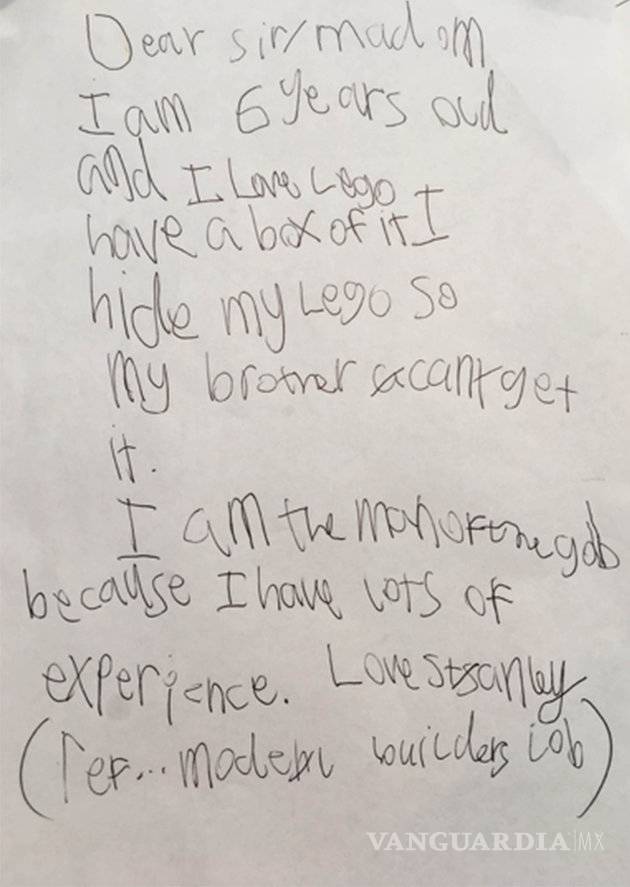 Dear sir/madam
I am 6 years oud
and I Love Lego
have a box of it I
hide my Lego so
my brother cant get
it.
I am the man of the gob
because I have lots of
experience. Love Stanley
(ref... model builders job)
VANGUARDIA|MX